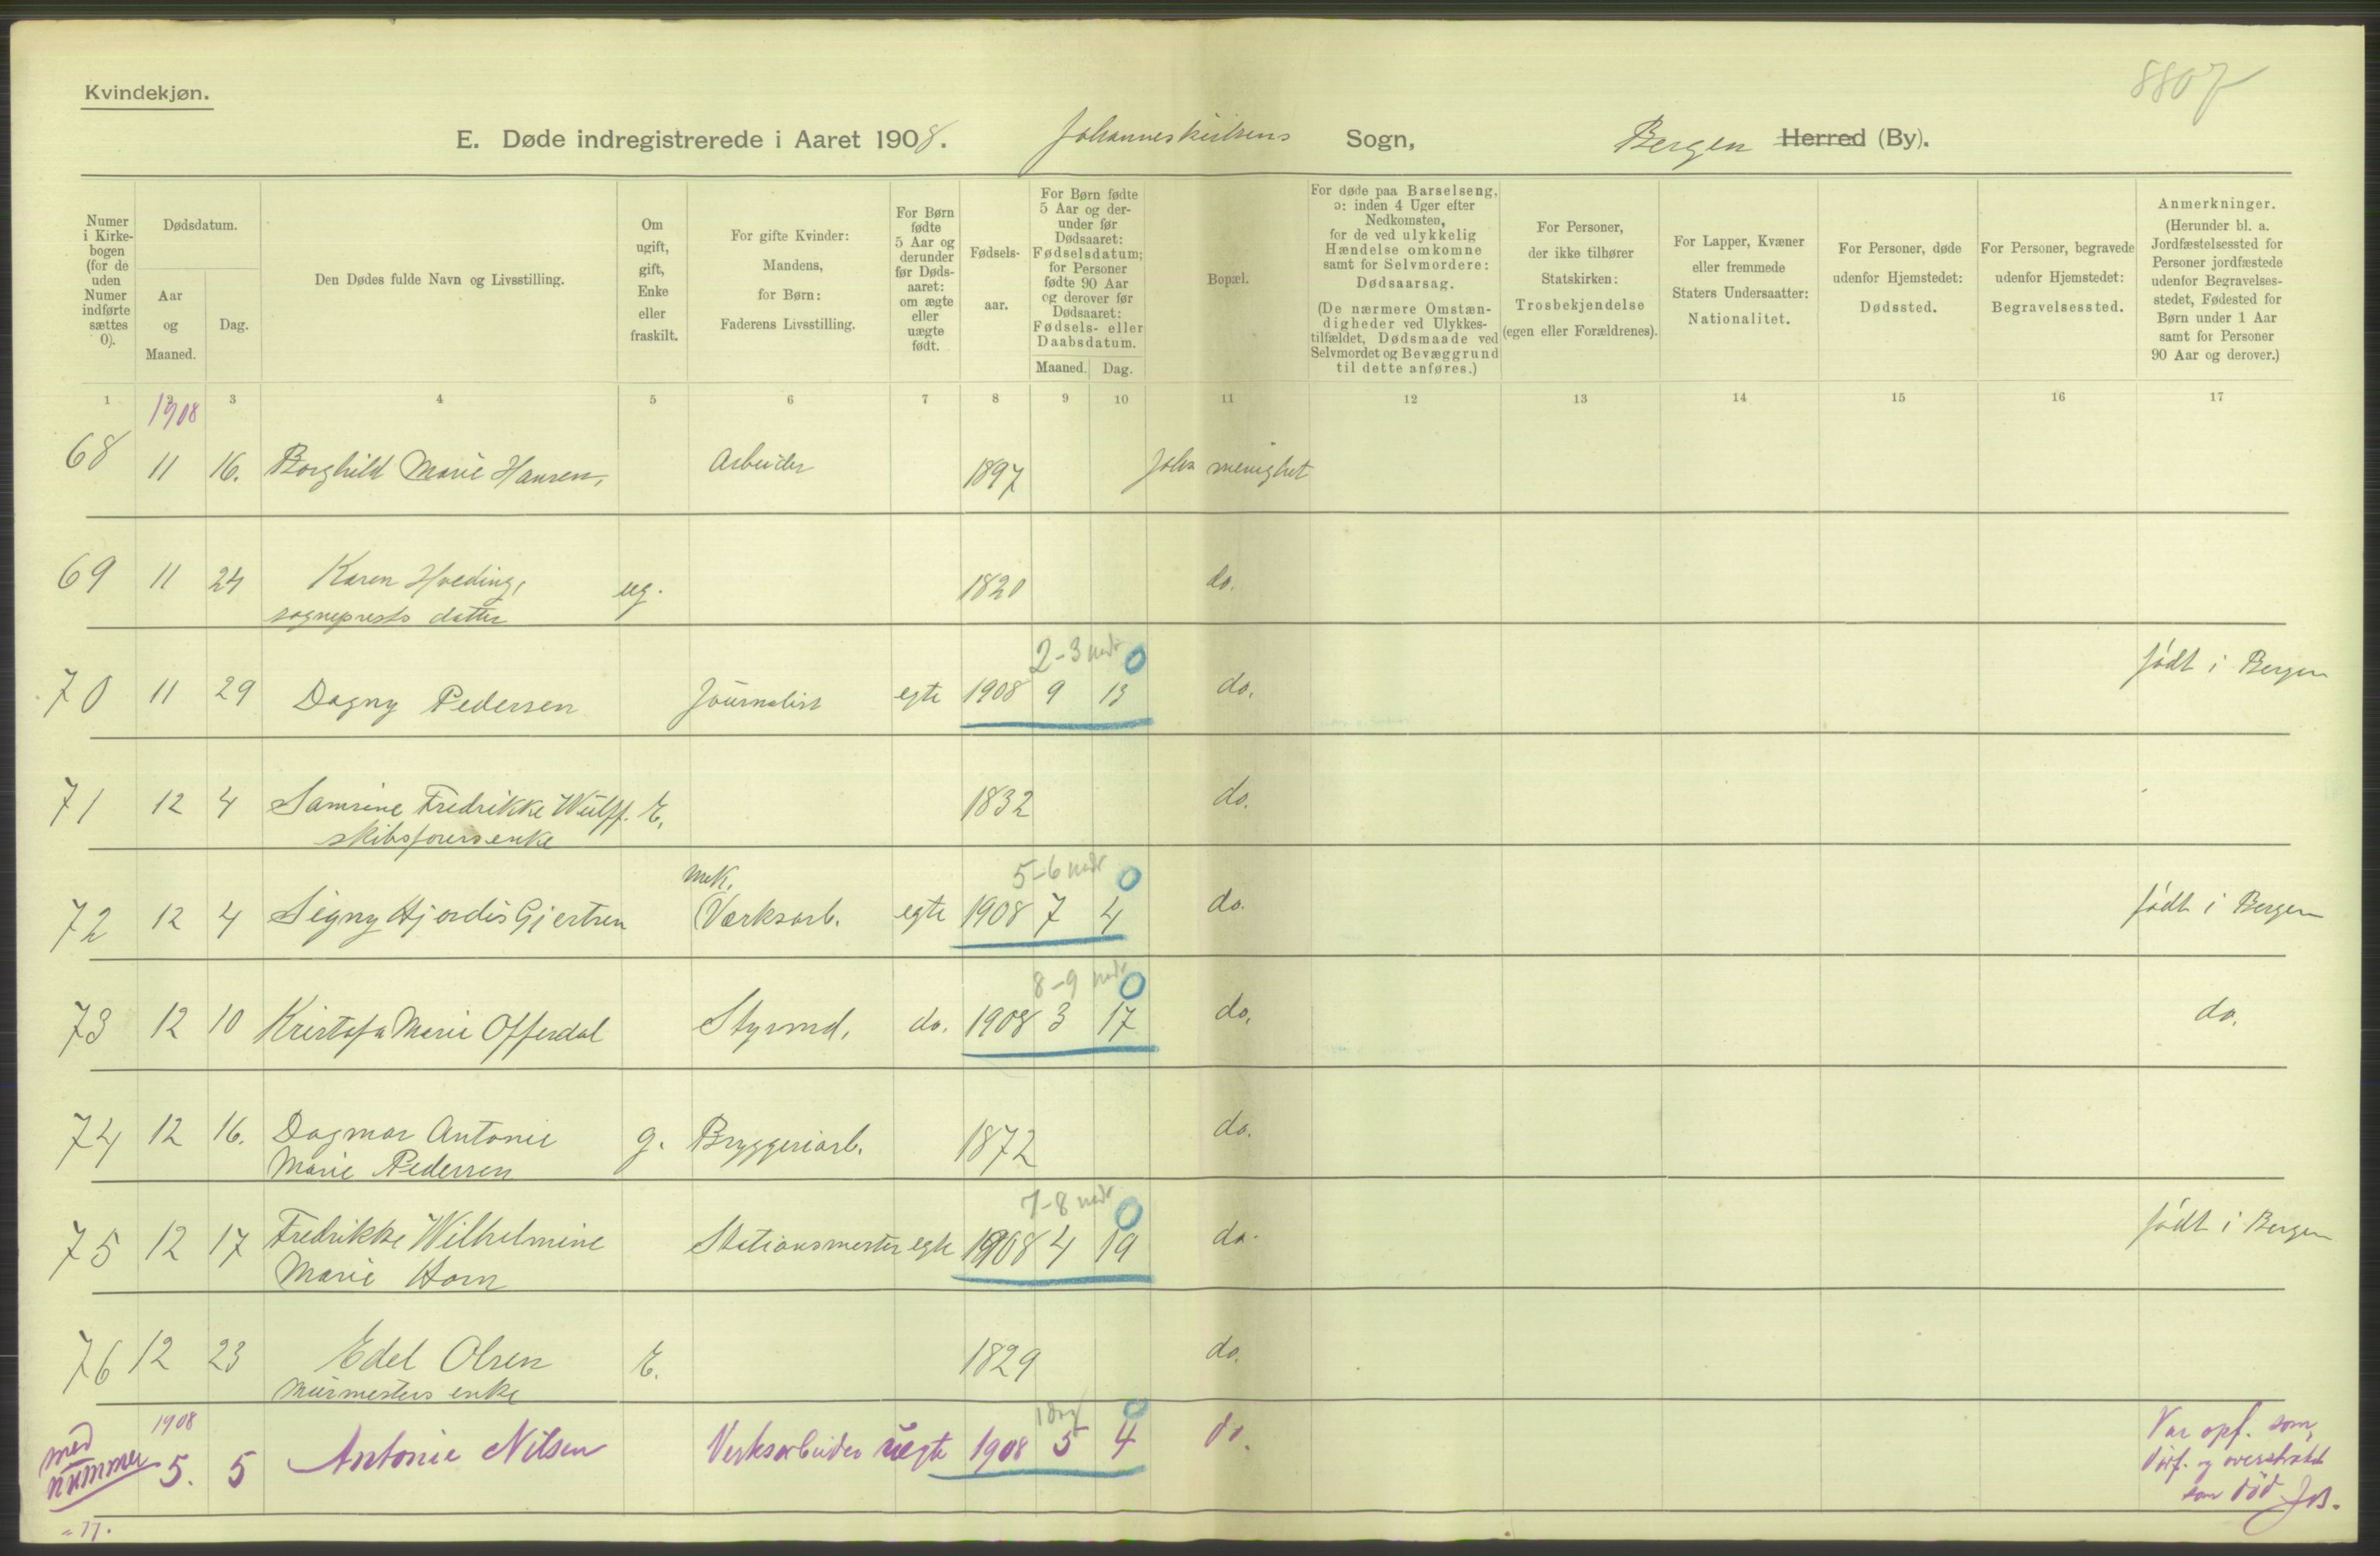 Kvindekjøn.
8807
E. Døde indregistrerede i Aaret 1908. Johanneskirkens Sogn, Bergen Herred (By).
Numer i Kirkebogen (for de uden Numer indførte sættes 0).
Dødsdatum.
Aar og Maaned.
Dag.
Den Dødes fulde Navn og Livsstilling.
Om ugift, gift, Enke eller fraskilt.
For gifte Kvinder: Mandens, for Børn: Faderens Livsstilling.
For Børn fødte 5 Aar og derunder før Dødsaaret: om ægte eller uægte født.
Fødsels-aar.
For Børn fødte 5 Aar og derunder før Dødsaaret: Fødselsdatum; for Personer fødte 90 Aar og derover før Dødsaaret: Fødsels- eller Daabsdatum.
Maaned. Dag.
Bopæl.
For døde paa Barselseng, ɔ: inden 4 Uger efter Nedkomsten, for de ved ulykkelig Hændelse omkomne samt for Selvmordere: Dødsaarsag.
(De nærmere Omstændigheder ved Ulykkestilfældet, Dødsmaade ved Selvmordet og Bevæggrund til dette anføres.)
For Personer, der ikke tilhører Statskirken: Trosbekjendelse (egen eller Forældrenes).
For Lapper, Kvæner eller fremmede Staters Undersaatter: Nationalitet.
For Personer, døde udenfor Hjemstedet: Dødssted.
For Personer, begravede udenfor Hjemstedet: Begravelsessted.
Anmerkninger.
(Herunder bl. a. Jordfæstelsessted for Personer jordfæstede udenfor Begravelsesstedet, Fødested for Børn under 1 Aar samt for Personer 90 Aar og derover.)
1 2 3 4 5 6 7 8 9 10 11 12 13 14 15 16 17
1908
68 11 16. Borghild Marie Hansen, Arbeider 1897 Johs menighet
69 11 24 Karen Hveding, ug. 1820 do.
sogneprests datter
2-3 mdr 0
70 11 29 Dagny Pedersen Journalist egte 1908 9 13 do. født i Bergen
71 12 4 Samsine Fredrikke Wülff. E. 1832 do.
skibsførers enke
mek. 5-6 mdr 0
72 12 4 Signy Hjørdis Gjertsen Værksarb. egte 1908 7 4 do. født i Bergen
8-9 mdr 0
73 12 10 Kristofa Marie Offerdal Styrmd. do. 1908 3 17 do. do.
74 12 16. Dagmar Antonie g. Bryggeriarb. 1872 do.
Marie Pedersen
7-8 mdr 0
75 12 17 Fredrikke Wilhelmine Stationsmester egte 1908 4 19 do. født i Bergen
Marie Horn
76 12 23 Edel Olsen E. 1829 do.
Murmesters enke
1908 1 dag 0
med nummer 5. 5 Antonie Nilsen Verksarbeider uegte 1908 5 4 do. Var opf. som
døpf. og overstrøket
som død
77.